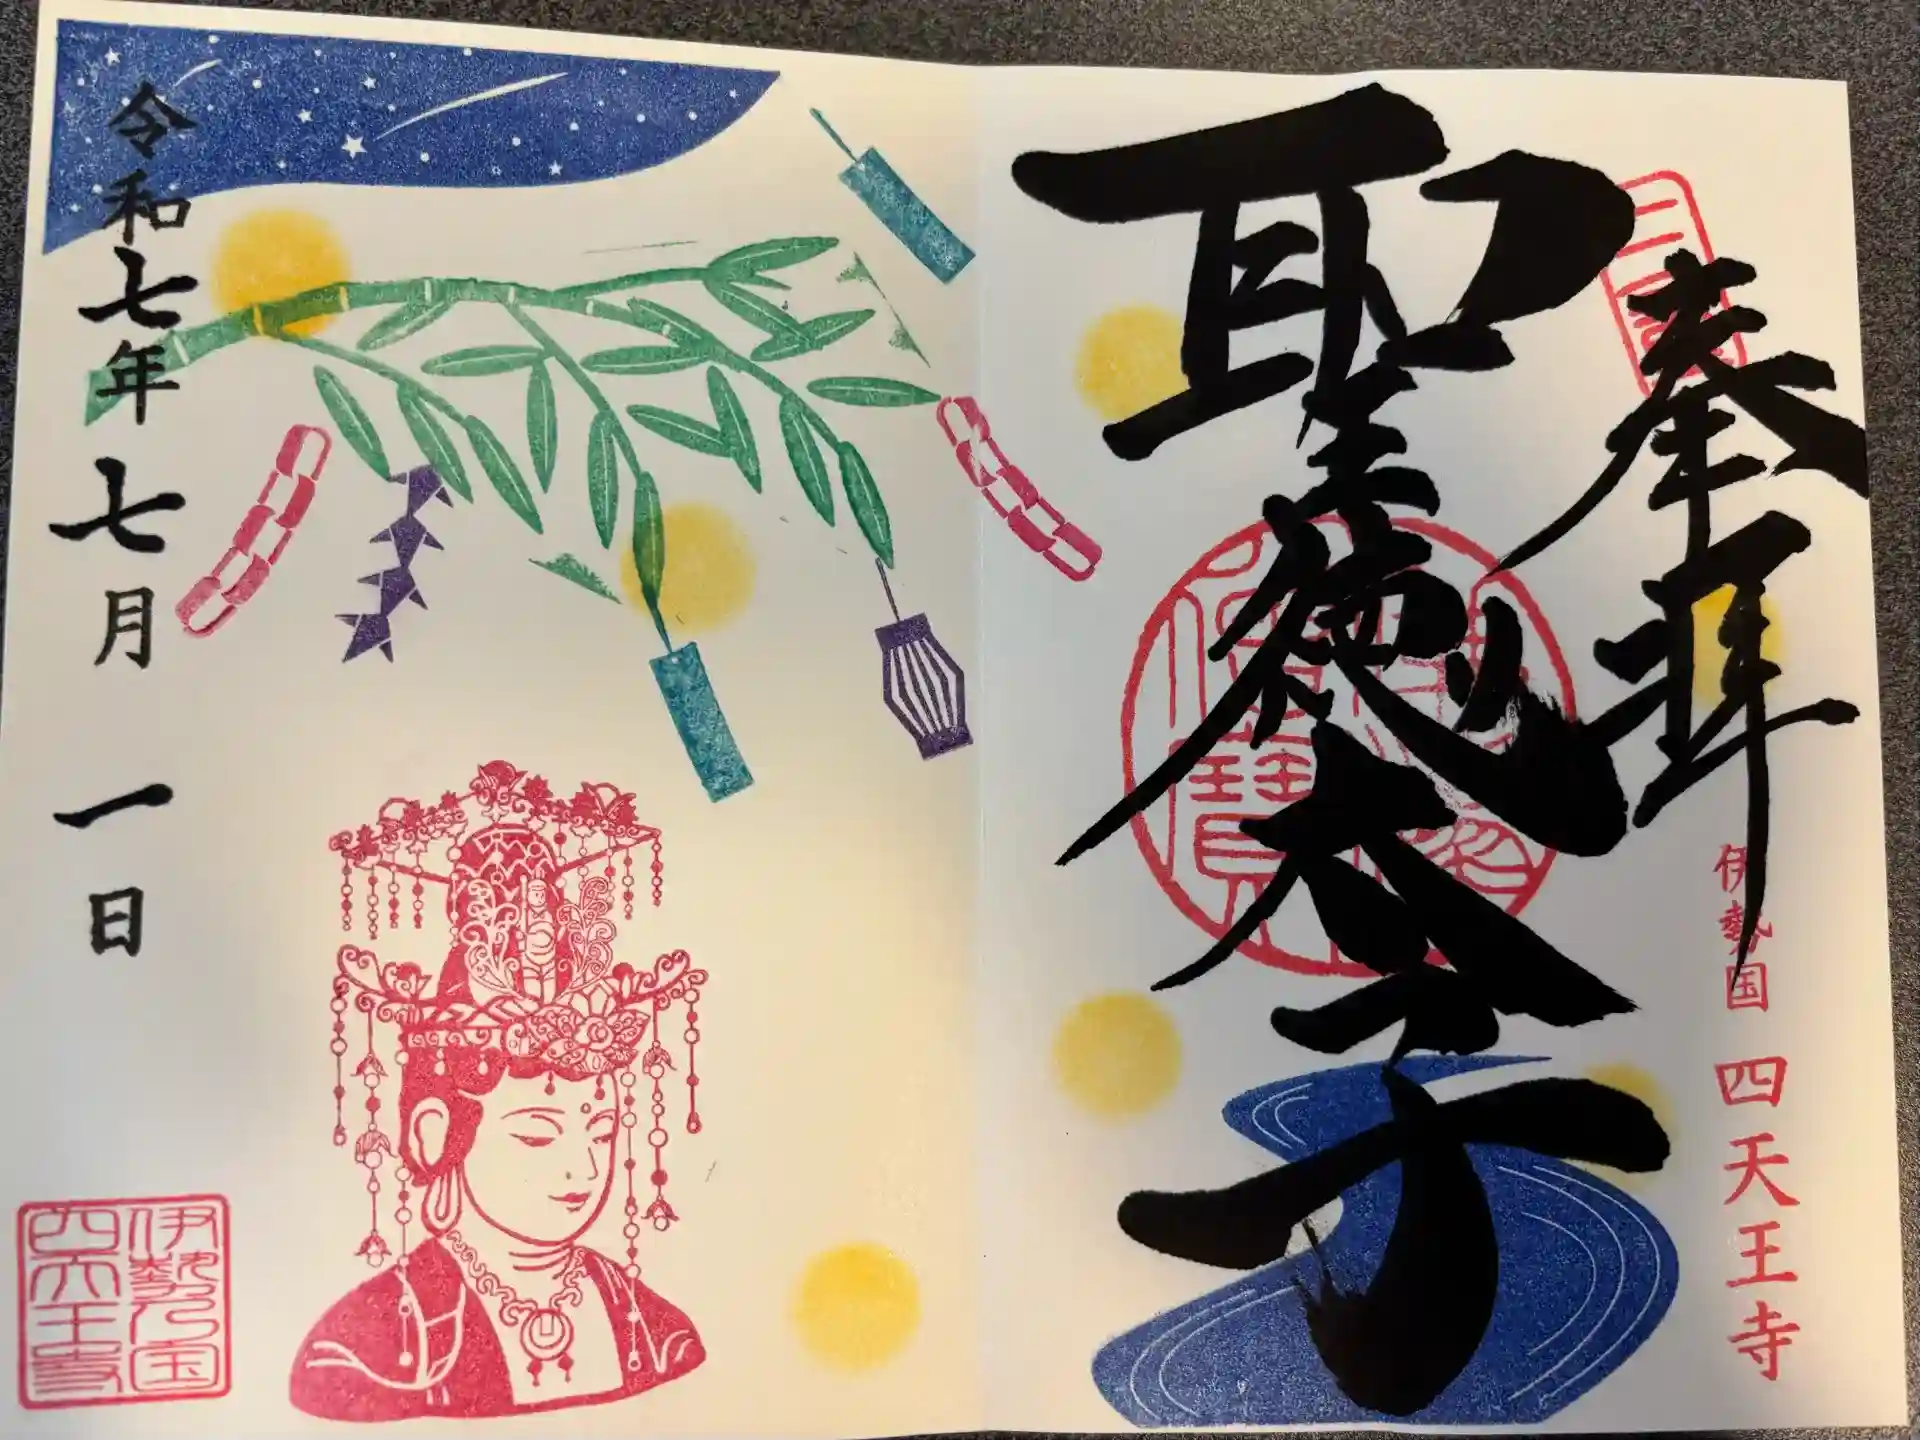 奉拝
聖徳太子
伊勢国 四天王寺
令和七年 七月 一日
伊勢乃国
四天王寺